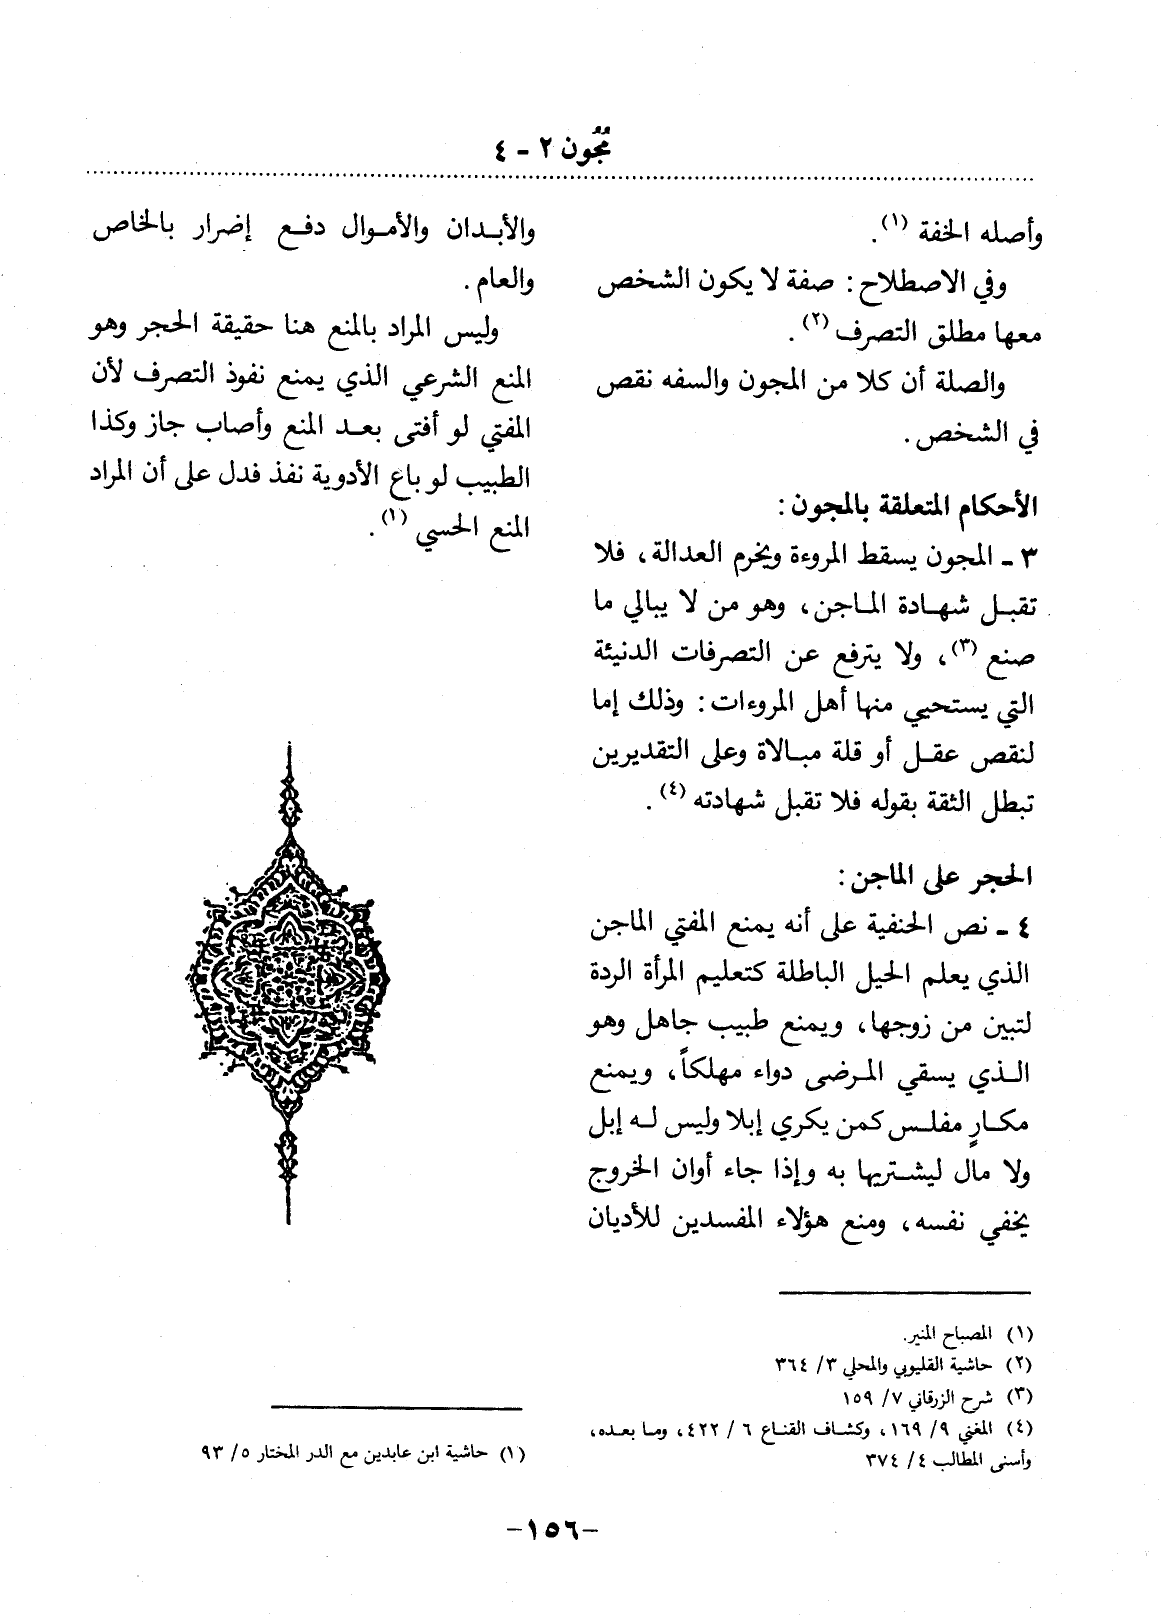 مُجُون ٢ - ٤
وأصله الخفة (١).
وفي الاصطلاح: صفة لا يكون الشخص
معها مطلق التصرف (٢).
والصلة أن كلا من المجون والسفه نقص
في الشخص.
الأحكام المتعلقة بالمجون:
٣ - المجون يسقط المروءة ويخرم العدالة، فلا
تقبل شهادة الماجن، وهو من لا يبالي ما
صنع (٣)، ولا يترفع عن التصرفات الدنيئة
التي يستحيي منها أهل المروءات: وذلك إما
لنقص عقل أو قلة مبالاة وعلى التقديرين
تبطل الثقة بقوله فلا تقبل شهادته (٤).
الحجر على الماجن:
٤ - نص الحنفية على أنه يمنع المفتي الماجن
الذي يعلم الحيل الباطلة كتعليم المرأة الردة
لتبين من زوجها، ويمنع طبيب جاهل وهو
الذي يسقي المرضى دواء مهلكاً، ويمنع
مكارٍ مفلس كمن يكري إبلا وليس له إبل
ولا مال ليشتريها به وإذا جاء أوان الخروج
يخفي نفسه، ومنع هؤلاء المفسدين للأديان
(١) المصباح المنير.
(٢) حاشية القليوبي والمحلي ٣/ ٣٦٤
(٣) شرح الزرقاني ٧/ ١٥٩
(٤) المغني ٩/ ١٦٩، وكشاف القناع ٦ / ٤٢٢، وما بعده،
وأسنى المطالب ٤/ ٣٧٤
والأبدان والأموال دفع إضرار بالخاص
والعام.
وليس المراد بالمنع هنا حقيقة الحجر وهو
المنع الشرعي الذي يمنع نفوذ التصرف لأن
المفتي لو أفتى بعد المنع وأصاب جاز وكذا
الطبيب لو باع الأدوية نفذ فدل على أن المراد
المنع الحسي (١).
(١) حاشية ابن عابدين مع الدر المختار ٥/ ٩٣
-١٥٦-